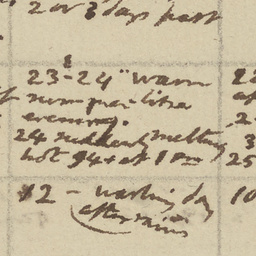 2 or 3 days past
23-24" warm
summer-like
evening.
24 suddenly melting
hot 94+ at 1 pm
25
12 - washing day
after rains
10